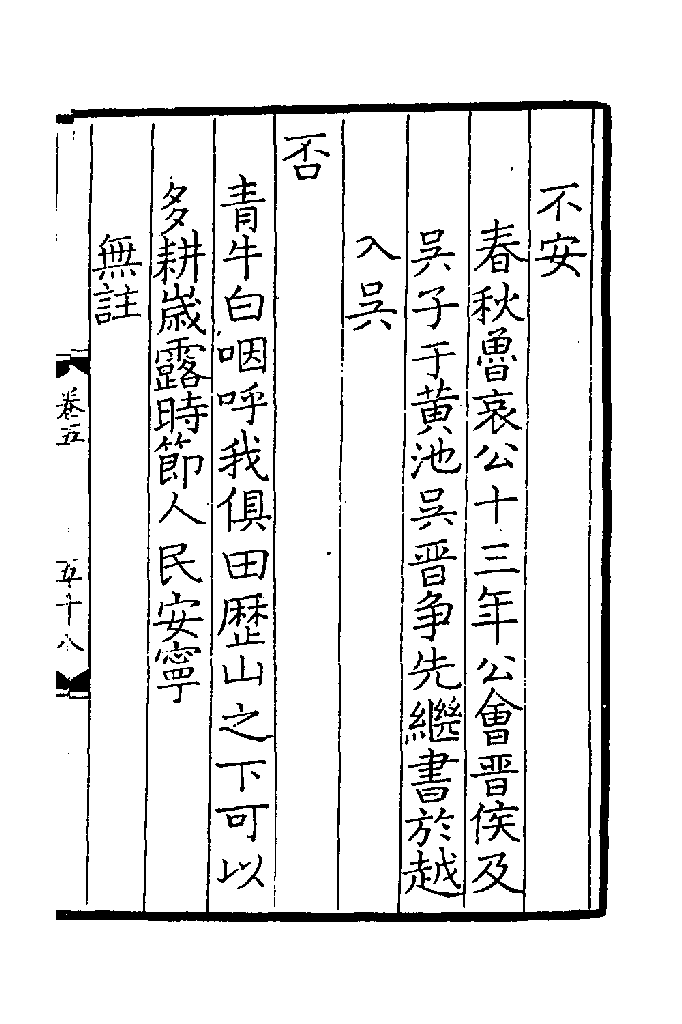 不安
春秋魯哀公十三年公會晋侯及
吳子于黄池吳晋争先繼書於越
入吳
否
青牛白咽呼我俱田歴山之下可以
多耕嵗露時節人民安寧
無註
卷五
五十八